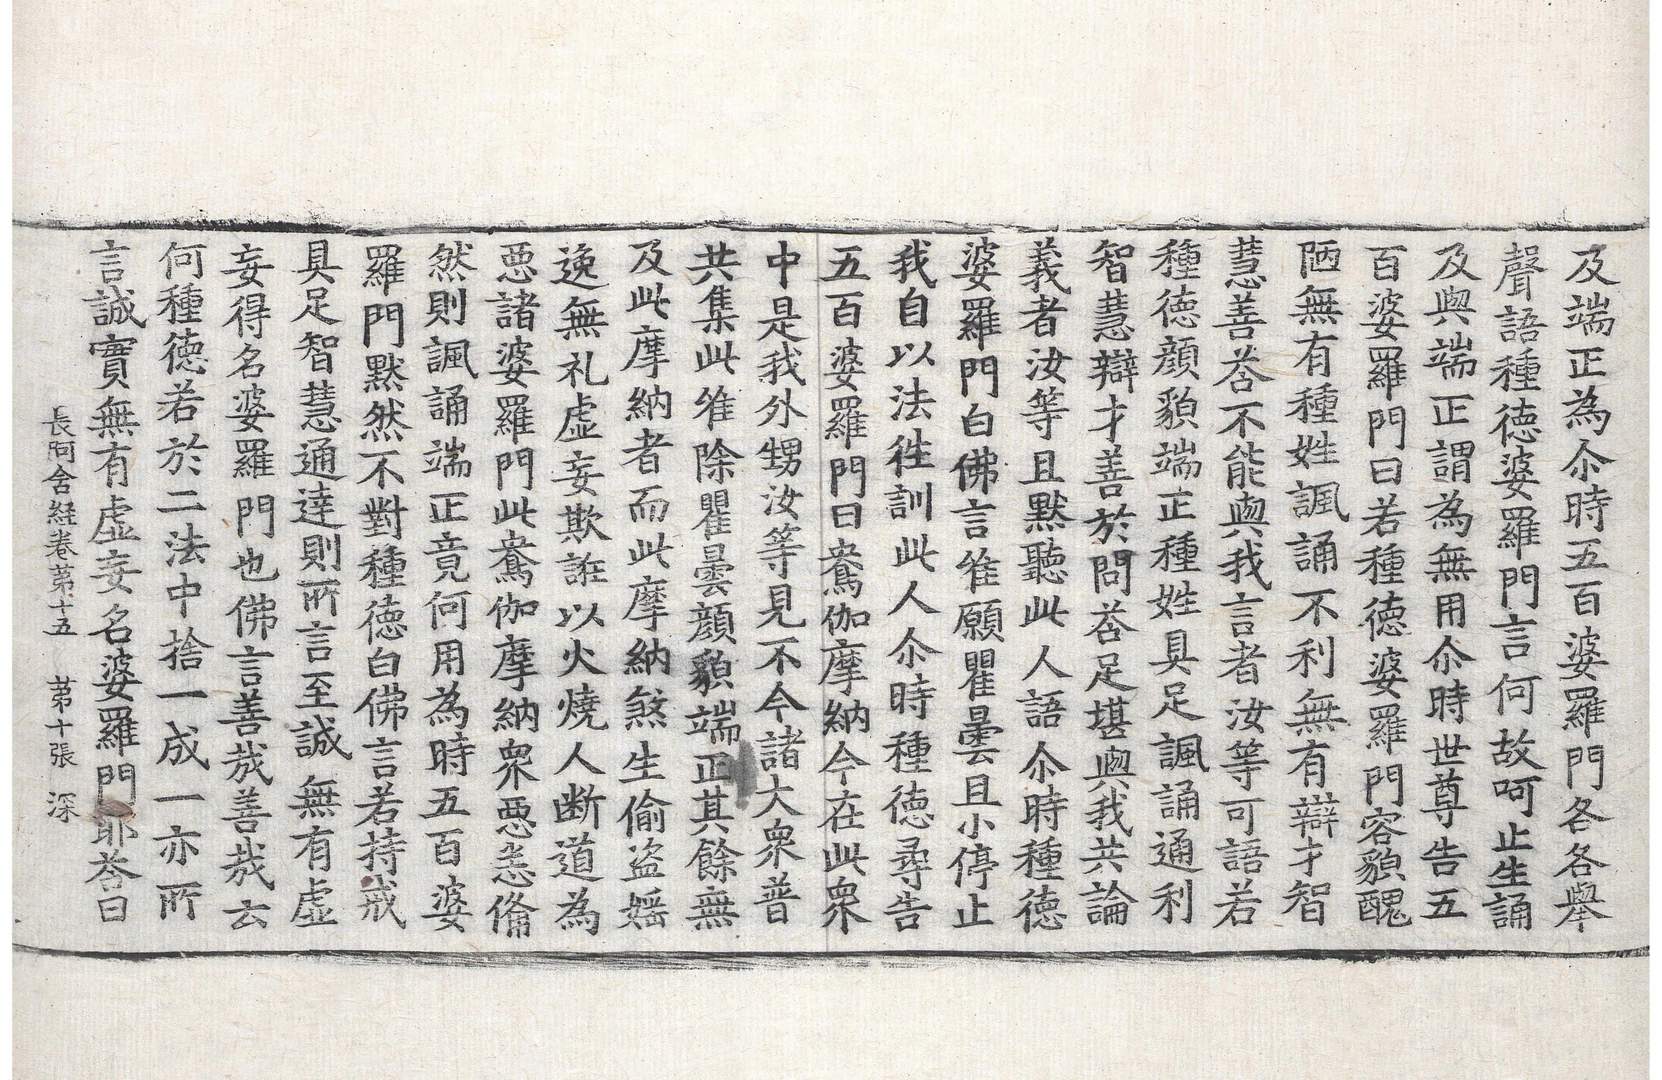 及端正為尒時五百婆羅門各各舉
聲語種德婆羅門言何故呵止生誦
及與端正謂為無用尒時世尊告五
百婆羅門曰若種德婆羅門容貌醜
陋無有種姓諷誦不利無有辯才智
慧善荅不能與我言者汝等可語若
種德顏貌端正種姓具足諷誦通利
智慧辯才善於問荅足堪與我共論
義者汝等且默聽此人語尒時種德
婆羅門白佛言唯願瞿曇且小停止
我自以法往訓此人尒時種德尋告
五百婆羅門曰鴦伽摩納今在此衆
中是我外甥汝等見不今諸大衆普
共集此唯除瞿曇顏貌端正其餘無
及此摩納者而此摩納煞生偷盜婬
逸無礼虛妄欺誑以火燒人斷道為
惡諸婆羅門此鴦伽摩納衆惡悉俻
然則諷誦端正竟何用為時五百婆
羅門默然不對種德白佛言若持戒
具足智慧通達則所言至誠無有虛
妄得名婆羅門也佛言善哉善哉云
何種德若於二法中捨一成一亦所
言誠實無有虛妄名婆羅門耶荅曰
長阿含經卷苐十五 苐十張 深